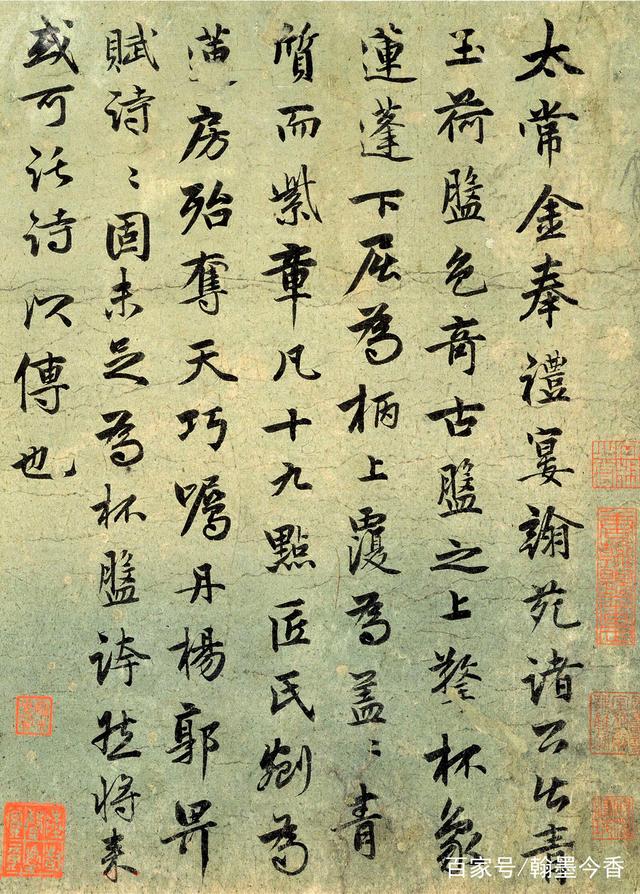 太常金奉禮宴翰苑諸公出青
玉荷盤色奇古盤之上鑿杯象
蓮蓬下屈為柄上覆為蓋〻青
質而紫章凡十九點匠氏劚為
蓮房殆奪天巧囑丹楊郭畀
賦詩〻固未足為杯盤誇然將来
或可託詩以傳也
百家号/翰墨今香